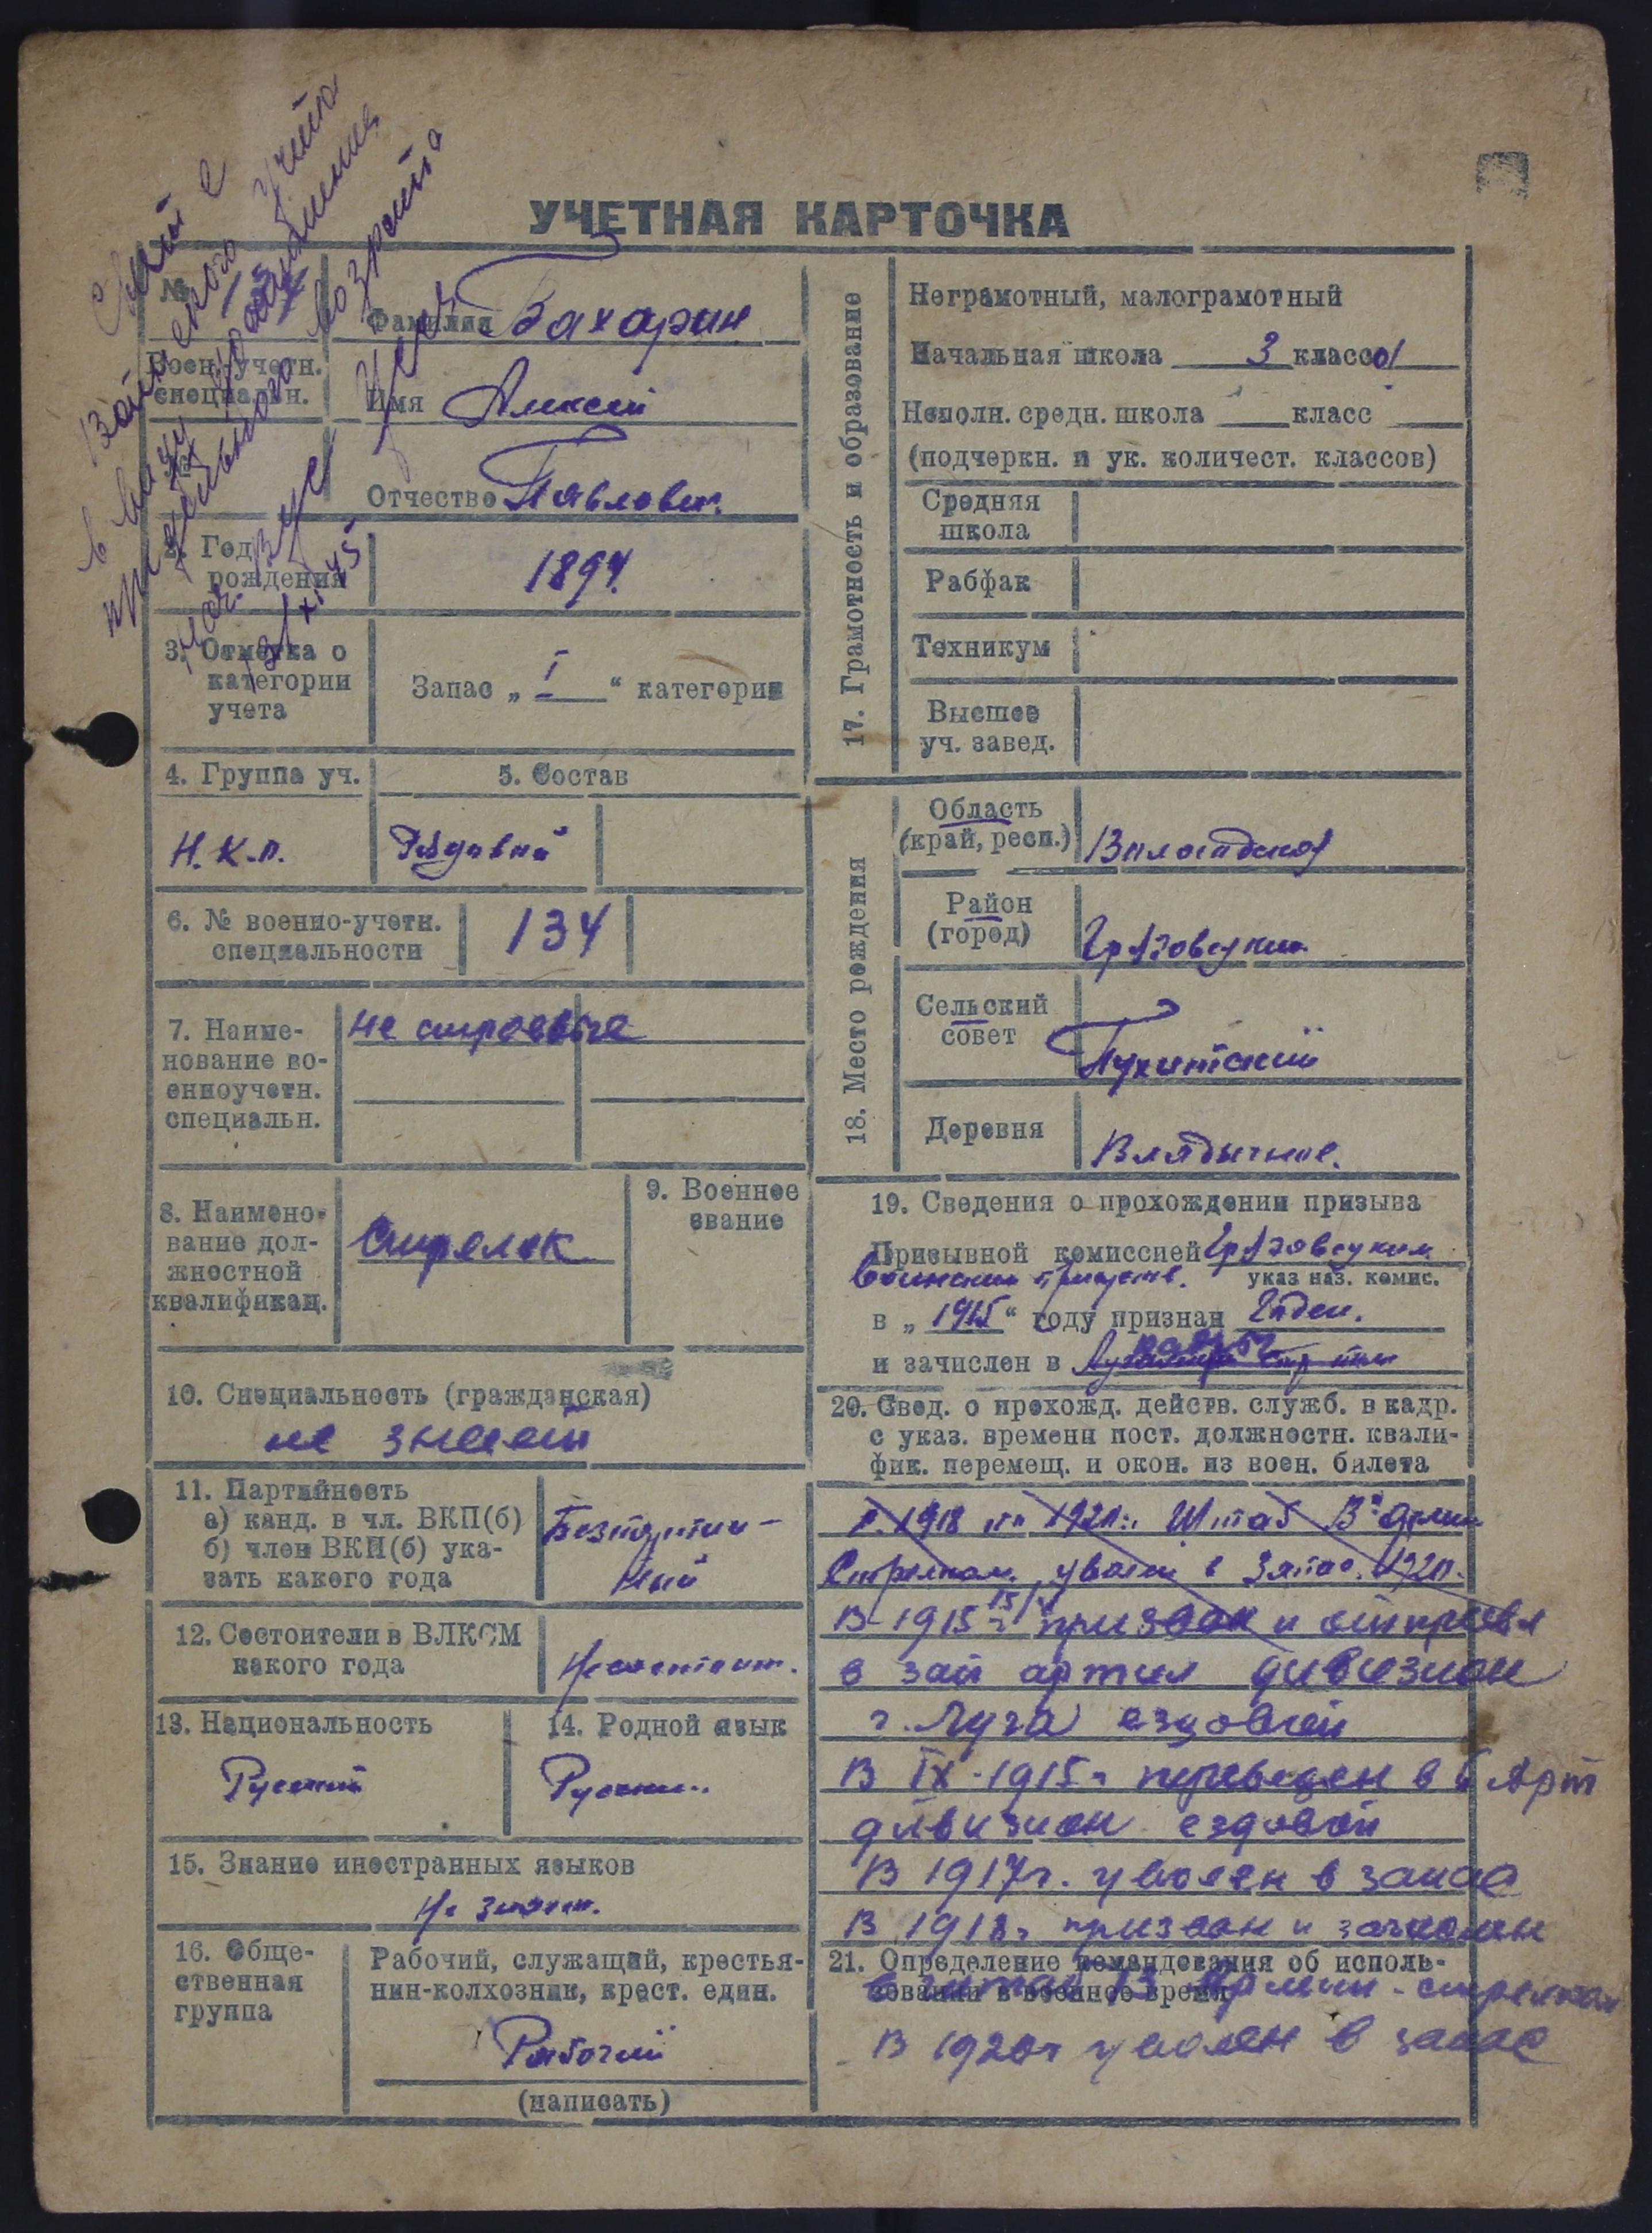 Снят с
Воинского учета
в виду
предельного возраста
Нач. ВУС
13/XI 45
УЧЕТНАЯ КАРТОЧКА
№
Воен. учетн.
специальн.
Фамилия Бахарин
Имя Алексей
Отчество Павлович.
2. Год
рождения
1894.
3. Отметка о
категории
учета
Запас „ I “ категории
4. Группа уч.
5. Состав
Н.К.О.
Рядовой
6. № военно-учетн.
специальности
134
7. Наиме-
нование во-
енноучетн.
специальн.
Не строевые
8. Наимено-
вание дол-
жностной
квалификац.
Стрелок
9. Военное
звание
10. Специальность (гражданская)
не знает
11. Партийность
а) канд. в чл. ВКП(б)
б) член ВКП(б) ука-
зать какого года
Безпартий-
ный
12. Состоит ли в ВЛКСМ
какого года
Не состоит.
13. Национальность
Русский
14. Родной язык
Русский.
15. Знание иностранных языков
Не знает.
16. Обще-
ственная
группа
Рабочий, служащий, крестья-
нин-колхозник, крест. един.
Рабочий
(написать)
17. Грамотность и образование
Неграмотный, малограмотный
Начальная школа 3 класса
Неполн. средн. школа класс
(подчеркн. и ук. количест. классов)
Средняя
школа
Рабфак
Техникум
Высшее
уч. завед.
18. Место рождения
Область
(край, респ.)
Вологодская
Район
(город)
Грязовецкий
Сельский
совет
Деревня
Владычное.
19. Сведения о прохождении призыва
Призывной комиссией Грязовецким
Воинским присутств. указ наз. комис.
в „ 1915 “ году признан Годен.
и зачислен в
20. Свед. о прохожд. действ. служб. в кадр.
с указ. времени пост. должностн. квали-
фик. перемещ. и окон. из воен. билета
с 1918 по 1920г. Штаб В армии
Стрелком, уволен в запас. 1920.
В 1915г призван и отправл
в зап артил дивизион
г. Луга ездовой
В IX-1915г переведен в 5 Арт
дивизион ездовой
В 1917г. уволен в запас
В 1918г призван и зачислен
21. Определение командования об исполь-
зовании в военное время
в штаб 13 Армии - стрелком
В 1920г уволен в запас